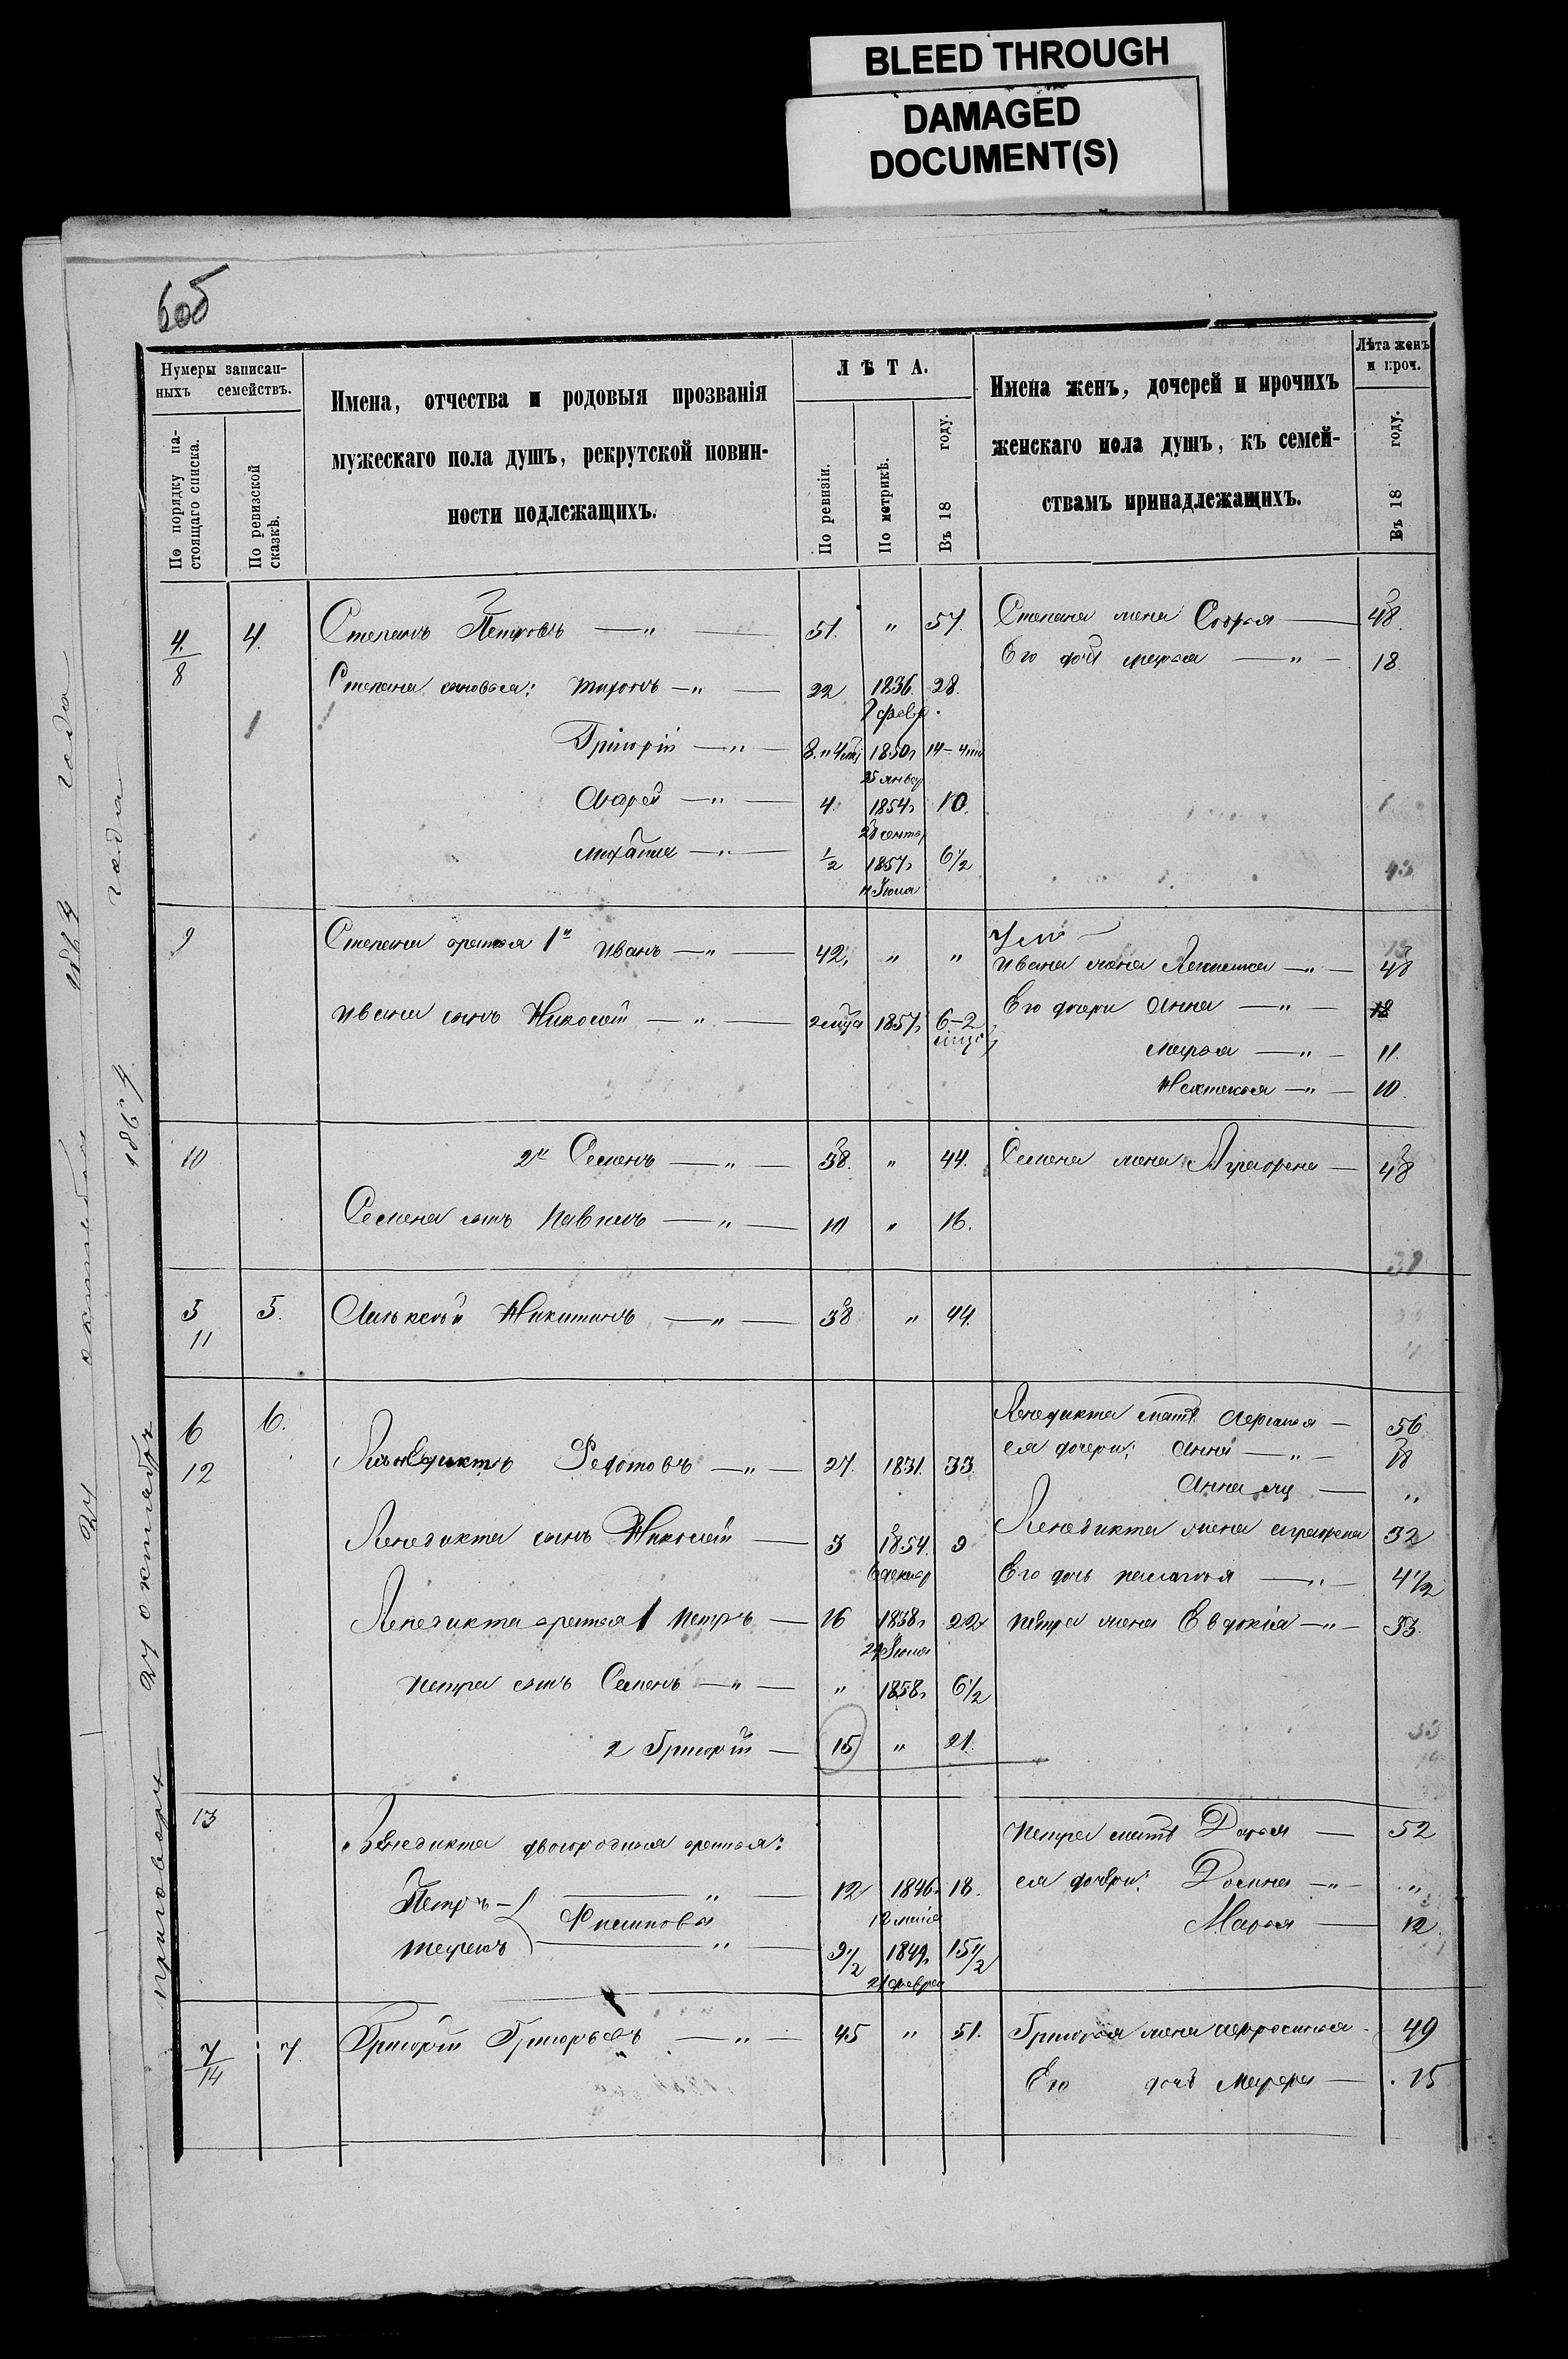 BLEED THROUGH
DAMAGED
DOCUMENT(S)
Нумеры записан-
ныхъ семействъ.
По порядку на-
стоящаго списка.
По ревизской
сказкѣ.
Имена, отчества и родовыя прозванія
мужескаго пола душъ, рекрутской повин-
ности подлежащихъ.
ЛѢТА.
По ревизіи.
По метрикѣ.
Въ 18 году.
Имена женъ, дочерей и прочихъ
женскаго пола душъ, къ семей-
ствамъ принадлежащихъ.
Лѣта женъ
и проч.
Въ 18 году.
4/8 4. Степанъ Петровъ — „ — 51. „ 57. Степана жена Софья — 48.
Его дочь марья — „ — 18
Степана сыновья: тихонъ — „ — 22 1836. 28.
7 февр.
Григорій — „ — 8. и 4 мц 1850 14 - 4 мц
25 январ
Андрей — „ — 4. 1854 10.
сентяб
михаила — „ — 1/2 1857 6 1/2
Іюня
9 Степана братья 1й иванъ — „ — 42. „ „
ивана жена — „ — 48
ивана сынъ Николай — „ — 2 мца 1857 6-2 мца
Его дочери Анна — „ — 18
марья — „ — 11.
— „ — 10.
10 2й Семенъ — „ — 38. „ 44. Семена жена Аграфена — 48
Семена сынъ Павелъ — „ — 10 „ 16.
5 11 5. Алексей Никитинъ — „ — 38 „ 44.
6 12 6. Федотовъ — „ — 27. 1831. 33.
мать — 56
ея дочери: Анна — „ — 18
Анна — „
сынъ Николай — 3 1854. 9
6 декаб
жена 32
Его дочь пелагья — „ — 4 1/2
братья 1 петръ — 16 1838 22
Іюня
петра жена Евдокія — „ — 33.
петра сынъ Семенъ — „ — „ 1858 6 1/2
2 Григорій — 15 „ 21.
13 двоюродныя братья:
петра мать Дарья — 52
Петръ — „ — 12 1846. 18.
12 маія
ея дочери: — „ — „
Филиповы
Марья — 12.
— „ — 9 1/2 1849 15 1/2
21 февраля
7/14 7. Григорій Григорьевъ — „ — 45 „ 51. Григорья жена — 49
Его дочь — 15
24 октября 1864 года
приговоръ 27 октября 1864 года